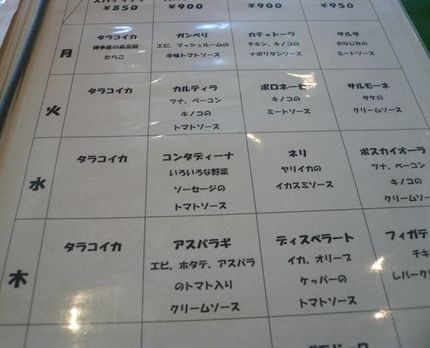 ¥850
¥900
¥900
¥950
月
タラコイカ
博多産の最高級
たらこ
ガンベリ
エビ、マッシュルームの
辛味トマトソース
カチャトーラ
チキン、キノコの
ナポリタンソース
サルサ
おなじみの
ミートソース
火
タラコイカ
カルティラ
ツナ、ベーコン
キノコの
トマトソース
ボロネーセ
キノコの
ミートソース
サルモーネ
サケの
クリームソース
水
タラコイカ
コンタディーナ
いろいろな野菜
ソーセージの
トマトソース
ネリ
ヤリイカの
イカスミソース
ボスカイオーラ
ツナ、ベーコン
キノコの
クリームソー
木
タラコイカ
アスパラギ
エビ、ホタテ、アスパラ
のトマト入り
クリームソース
ディスペラート
イカ、オリーブ
ケッパーの
トマトソース
フィガテ
チキ
レバーク